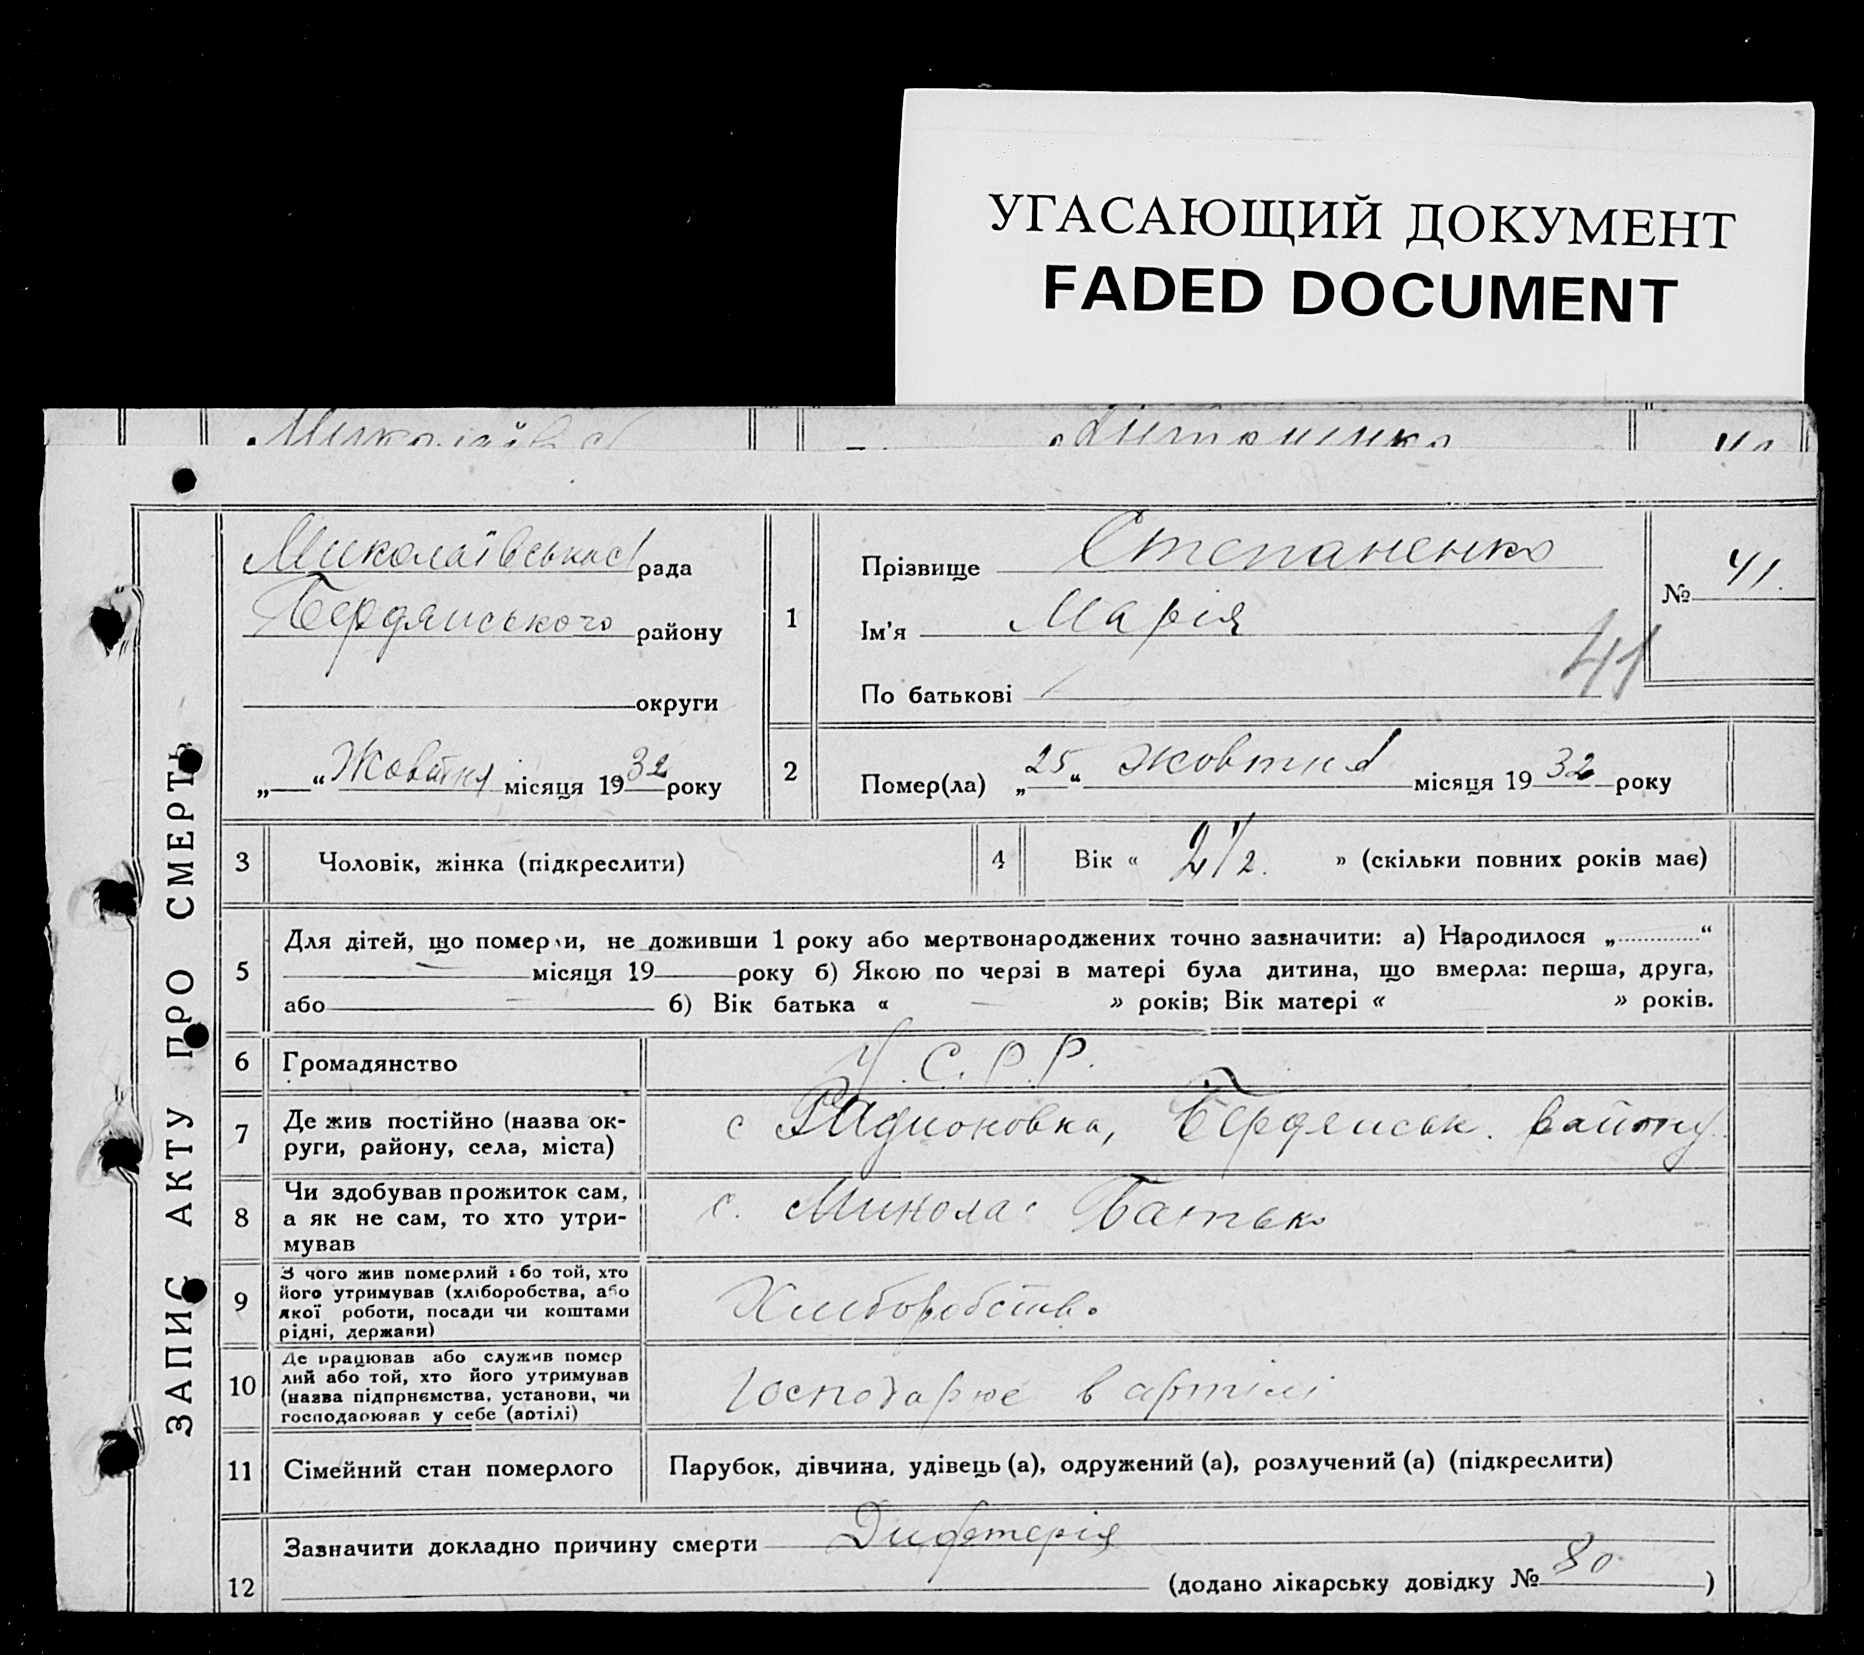 УГАСАЮЩИЙ ДОКУМЕНТ
FADED DOCUMENT
ЗАПИС АКТУ ПРО СМЕРТЬ
Миколаївська рада
Бердянського району
округи
„ “ Жовтня місяця 1932 року
1
Прізвище Степаненко
Ім'я Марія
По батькові
№ 41.
41
2
Помер(ла) „25“ жовтня місяця 1932 року
3 Чоловік, жінка (підкреслити)
4 Вік « 2 1/2. » (скільки повних років має)
5
Для дітей, що померли, не доживши 1 року або мертвонароджених точно зазначити: а) Народилося „ “
місяця 19 року б) Якою по черзі в матері була дитина, що вмерла: перша, друга,
або б) Вік батька « — » років; Вік матері « » років.
6 Громадянство У.С.Р.Р.
7
Де жив постійно (назва ок-
руги, району, села, міста)
с Радионовка, Бердянськ. району
8
Чи здобував прожиток сам,
а як не сам, то хто утри-
мував
с. Микола Батько
9
З чого жив померлий або той, хто
його утримував (хліборобства, або
якої роботи, посади чи коштами
рідні, держави)
Хлиборобство
10
Де працював або служив помер
лий або той, хто його утримував
(назва підприємства, установи, чи
господарював у себе (артілі)
Господарює в артілі
11 Сімейний стан померлого Парубок, дівчина, удівець (а), одружений (а), розлучений (а) (підкреслити)
12
Зазначити докладно причину смерти Дифтерія
(додано лікарську довідку № 80 )